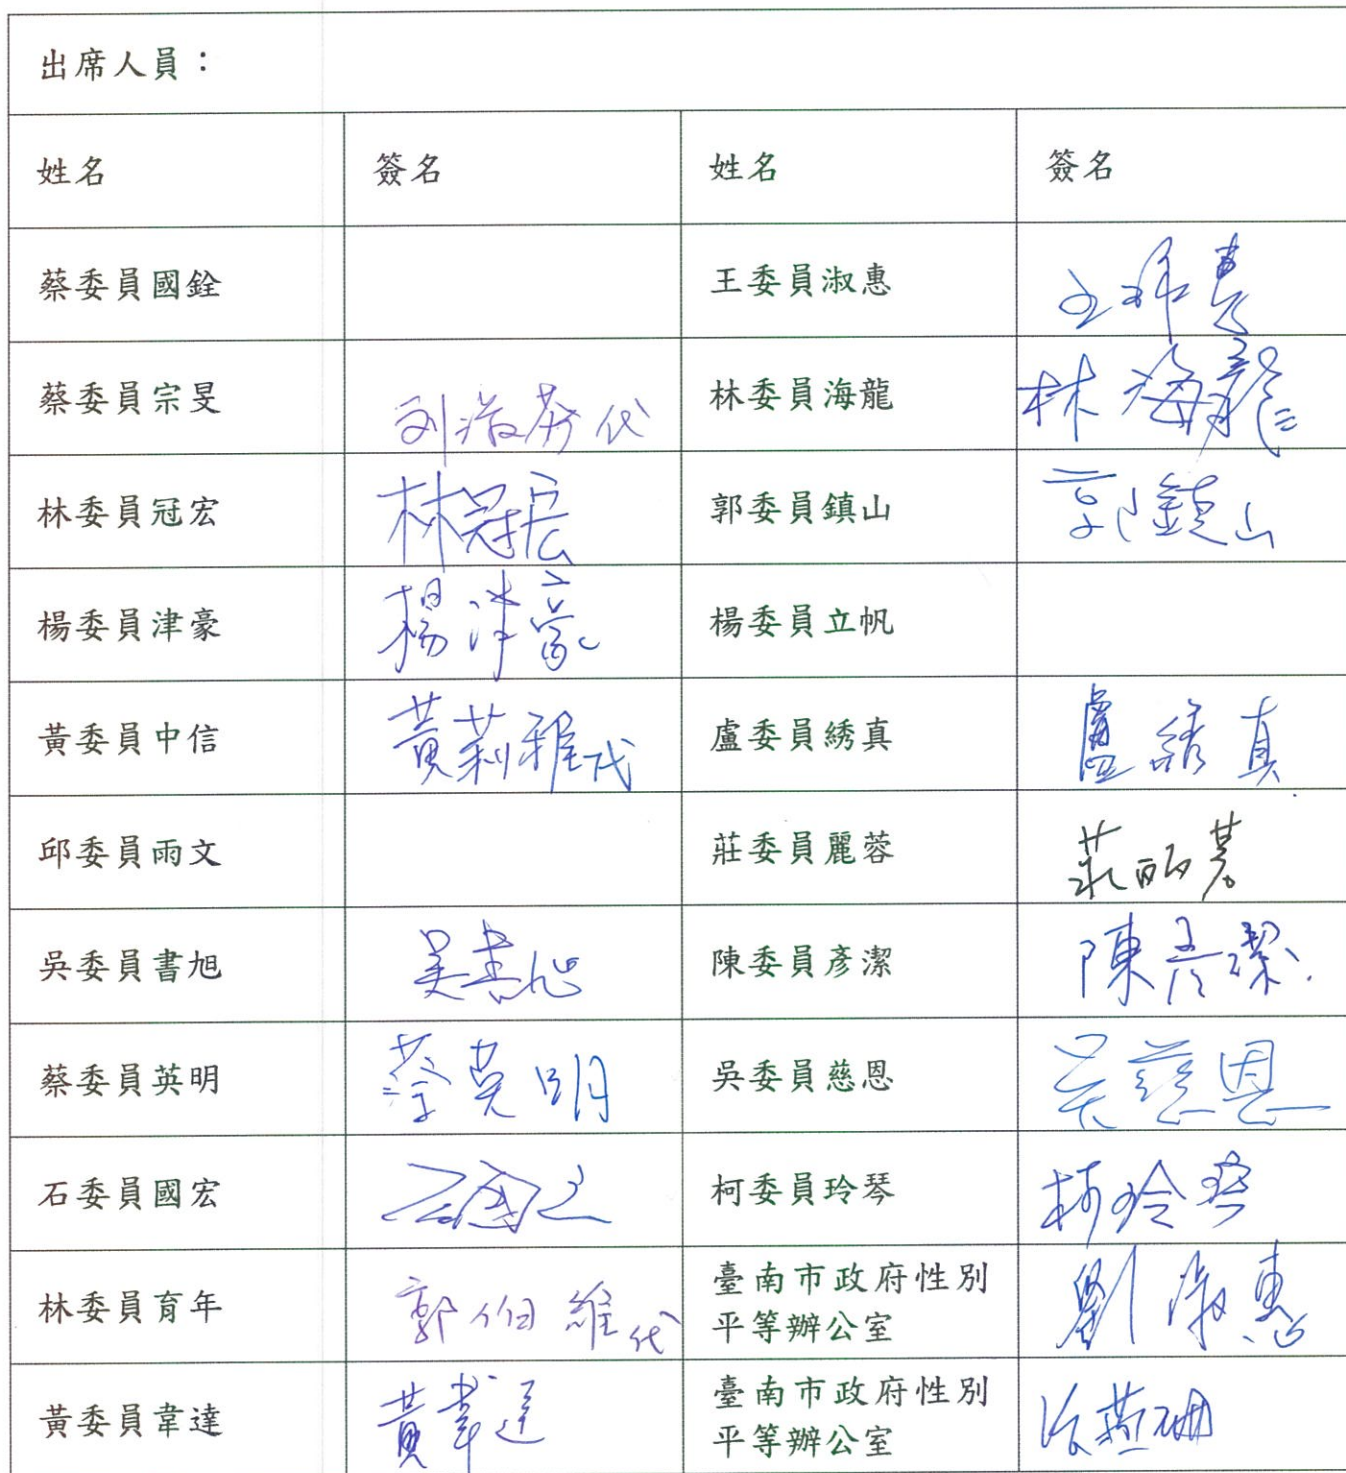 出席人員：
姓名 簽名 姓名 簽名
蔡委員國銓 王委員淑惠 王淑惠
蔡委員宗旻 刘淑芬代 林委員海龍 林海龍
林委員冠宏 林冠宏 郭委員鎮山 郭鎮山
楊委員津豪 楊津豪 楊委員立帆
黃委員中信 黃莉雅代 盧委員綉真 盧綉真
邱委員雨文 莊委員麗蓉 莊麗蓉
吳委員書旭 吴書旭 陳委員彥潔 陳彥潔
蔡委員英明 蔡英明 吳委員慈恩 吴慈恩
石委員國宏 石國宏 柯委員玲琴 柯玲琴
林委員育年 郭伯維代 臺南市政府性別
平等辦公室 劉淑惠
黃委員韋達 黃韋達 臺南市政府性別
平等辦公室